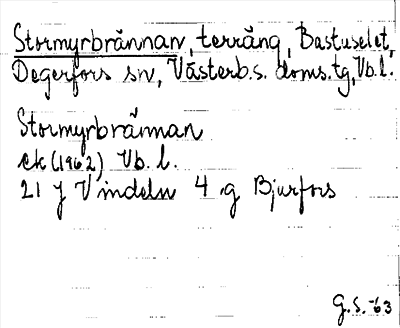 Stormyrbrännan, terräng, Bastuselet,
Degerfors sn, Västerb.s. doms.tg, Vb.l.
Stormyrbrännan
ek (1962) Vb. l.
21 J Vindeln 4 g Bjurfors
G.S. -63